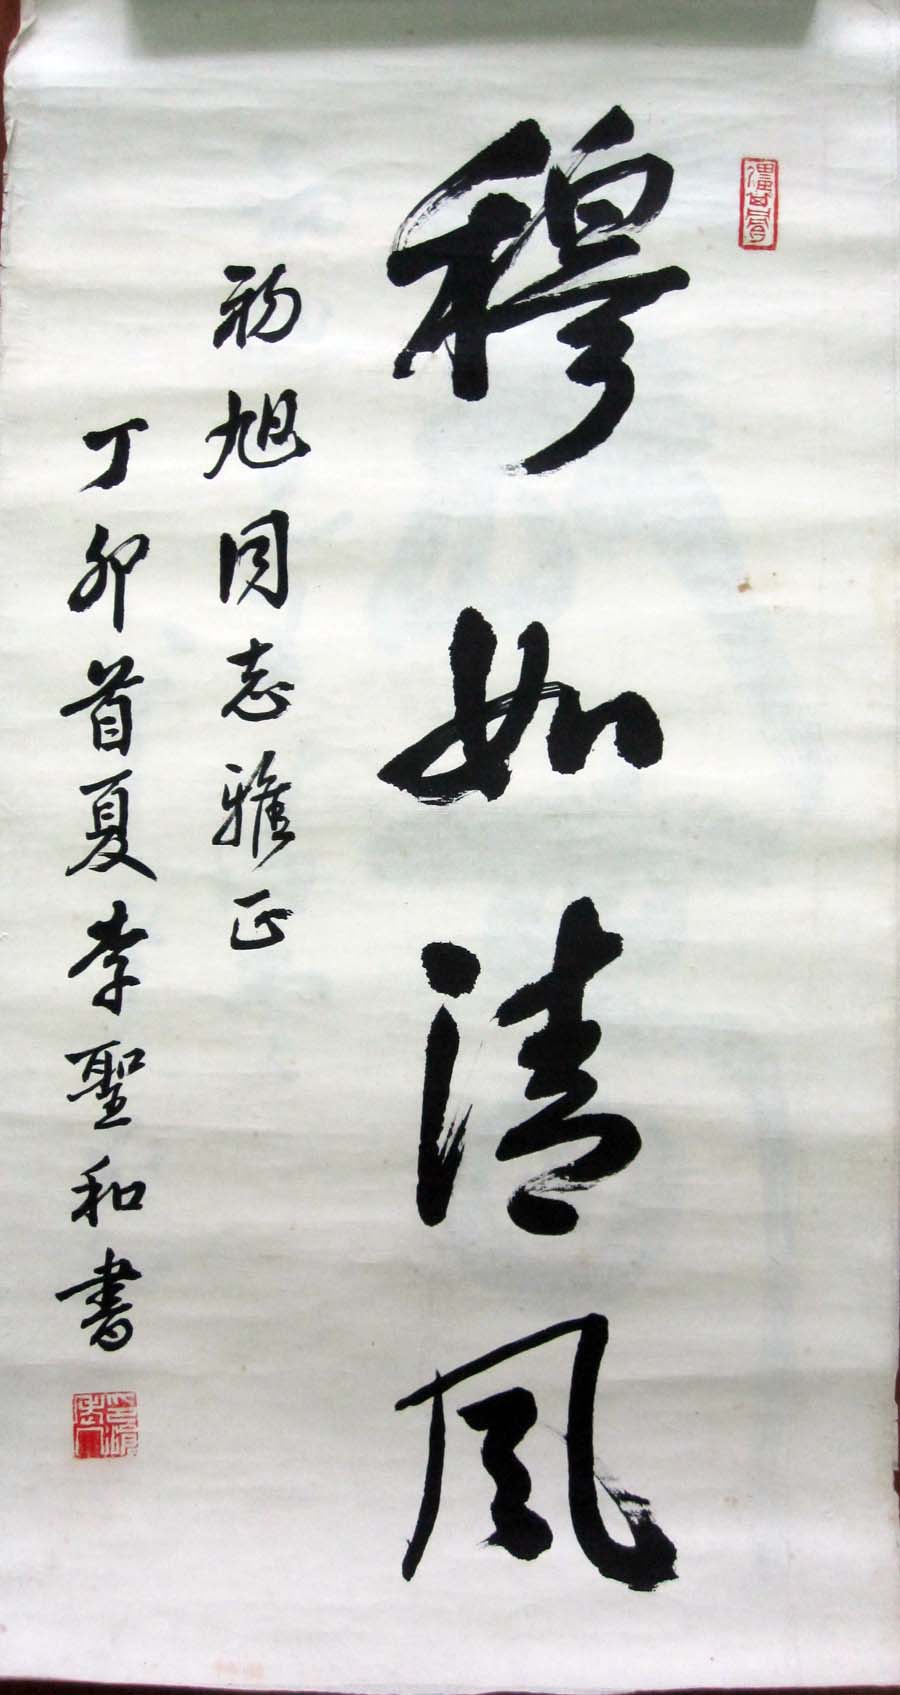 穆如清风
初旭同志雅正
丁卯首夏李聖和書